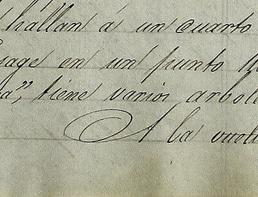 hallan á un cuarto
sage en un punto
a", tiene varios arbole
A la vuelt